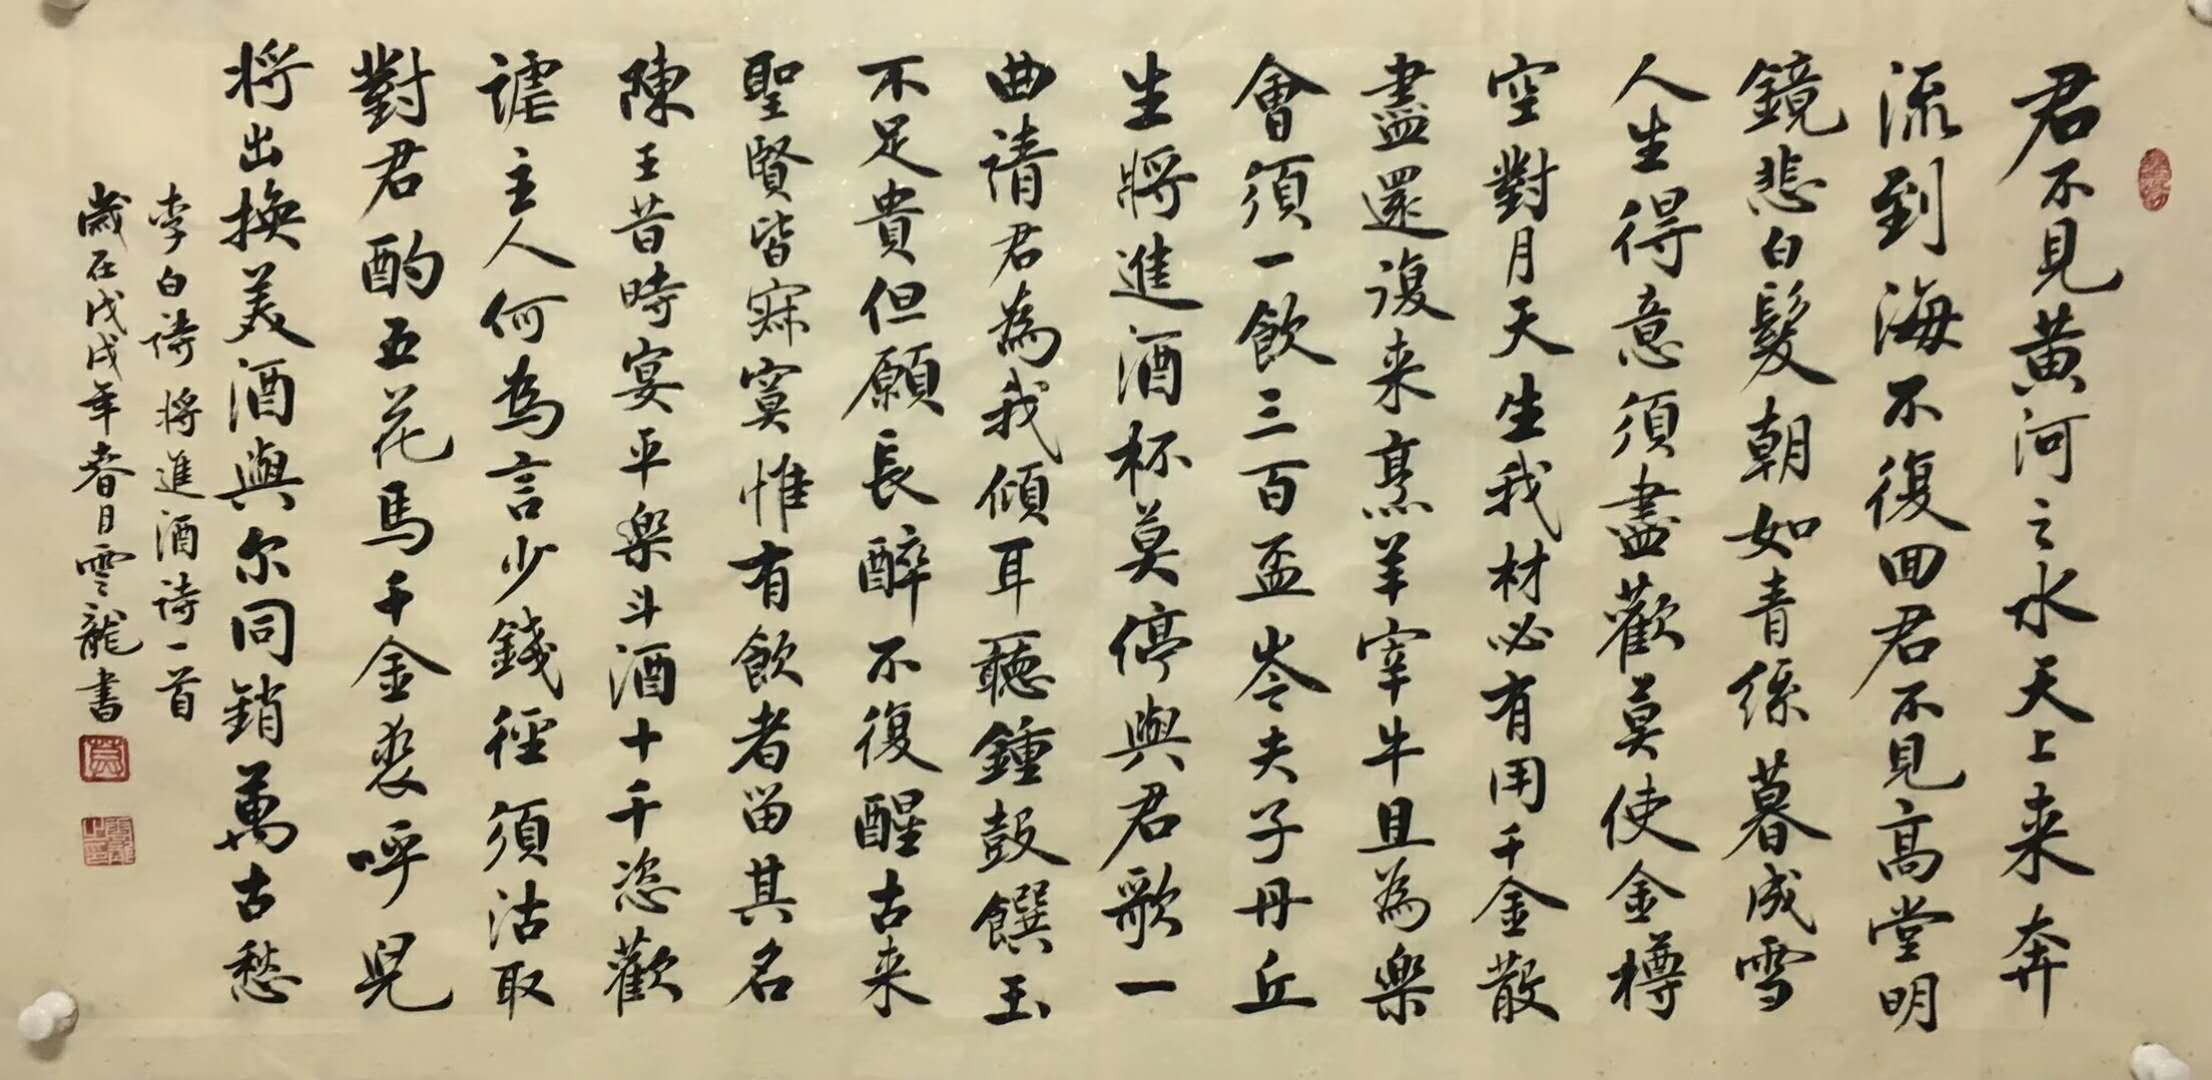 君不見黄河之水天上来奔
流到海不復回君不見高堂明
鏡悲白髮朝如青絲暮成雪
人生得意須盡歡莫使金樽
空對月天生我材必有用千金散
盡還復来烹羊宰牛且為樂
會須一飲三百盃岑夫子丹丘
生將進酒杯莫停與君歌一
曲請君為我傾耳聽鐘鼓饌玉
不足貴但願長醉不復醒古来
聖賢皆寂寞惟有飲者留其名
陳王昔時宴平樂斗酒十千恣歡
謔主人何為言少錢徑須沽取
對君酌五花馬千金裘呼兒
將出換美酒與尔同銷萬古愁
李白詩將進酒詩一首
歲在戊戌年春月雲龍書